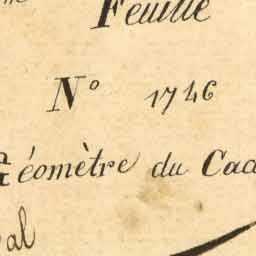 Feuille
N° 1746
Géomètre du Cad
al